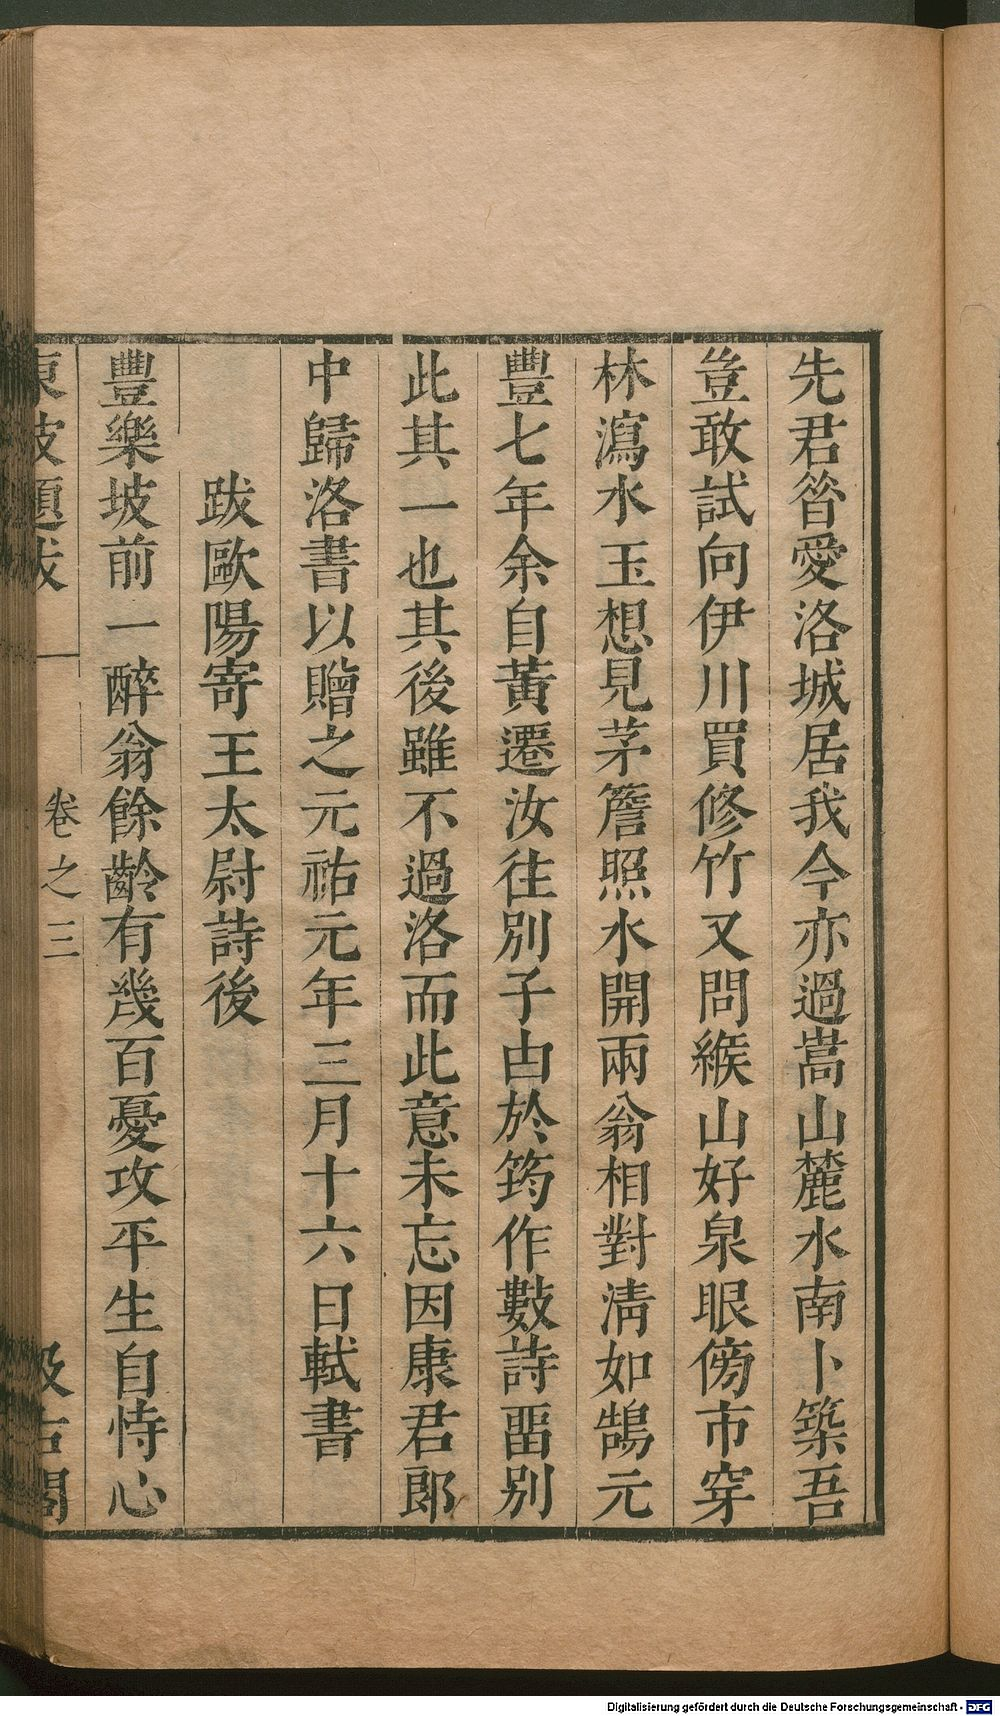 先君昝愛洛城居我今亦過嵩山麓水南卜築吾
豈敢試向伊川買修竹又問緱山好泉眼傍市穿
林瀉水玉想見茅簷照水開兩翁相對淸如鵠元
豐七年余自黃遷汝往別子由於筠作數詩畱別
此其一也其後雖不過洛而此意未忘因康君郎
中歸洛書以贈之元祐元年三月十六日軾書
跋歐陽寄王太尉詩後
豐樂坡前一醉翁餘齡有幾百憂攻平生自恃心
東坡題跋
卷之三
汲古閣
Digitalisierung gefördert durch die Deutsche Forschungsgemeinschaft - DFG